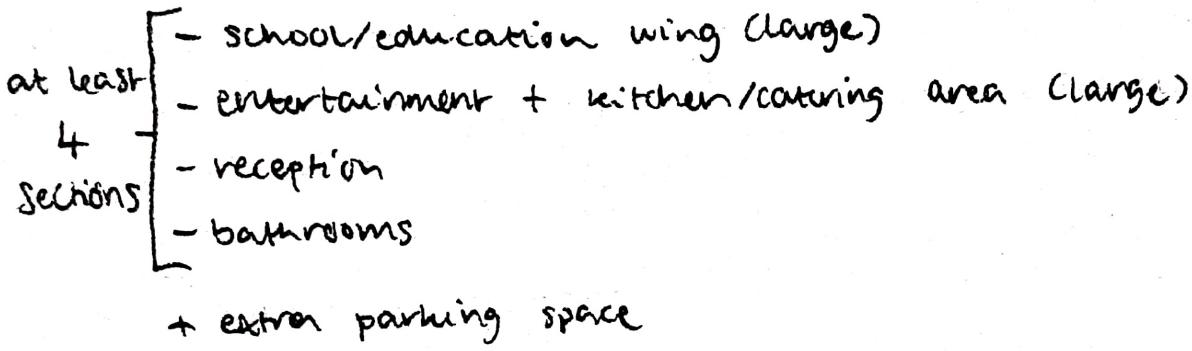 at least
4
sections
- school/education wing (large)
- entertainment + kitchen/catering area (large)
- reception
- bathrooms
+ extra parking space